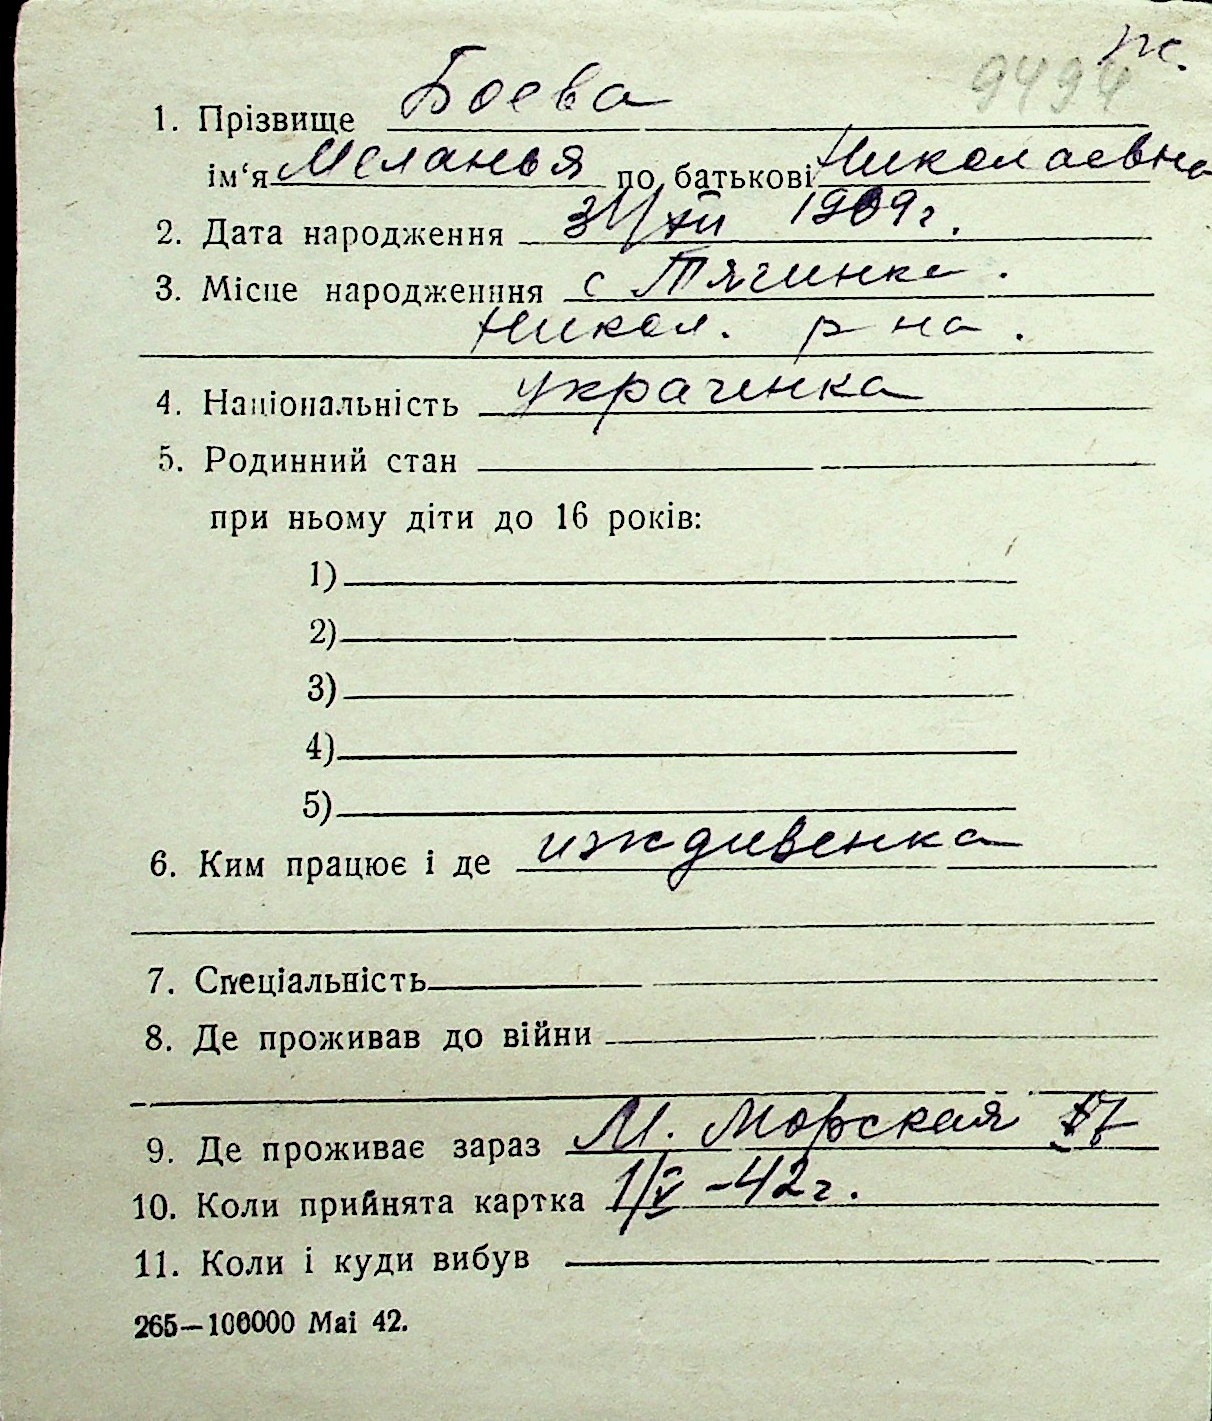 9494 ж.
1. Прізвище Боева
ім‘я Меланья по батькові Николаевна
2. Дата народження 31/XII 1909 г.
3. Місце народженння с Тягинка.
Никол. р на.
4. Національність украинка
5. Родинний стан
при ньому діти до 16 років:
1)
2)
3)
4)
5)
6. Ким працює і де иждивенка
7. Спеціальність
8. Де проживав до війни
9. Де проживає зараз М. Морская 17
10. Коли прийнята картка 1/V -42 г.
11. Коли і куди вибув
265—100000 Маі 42.